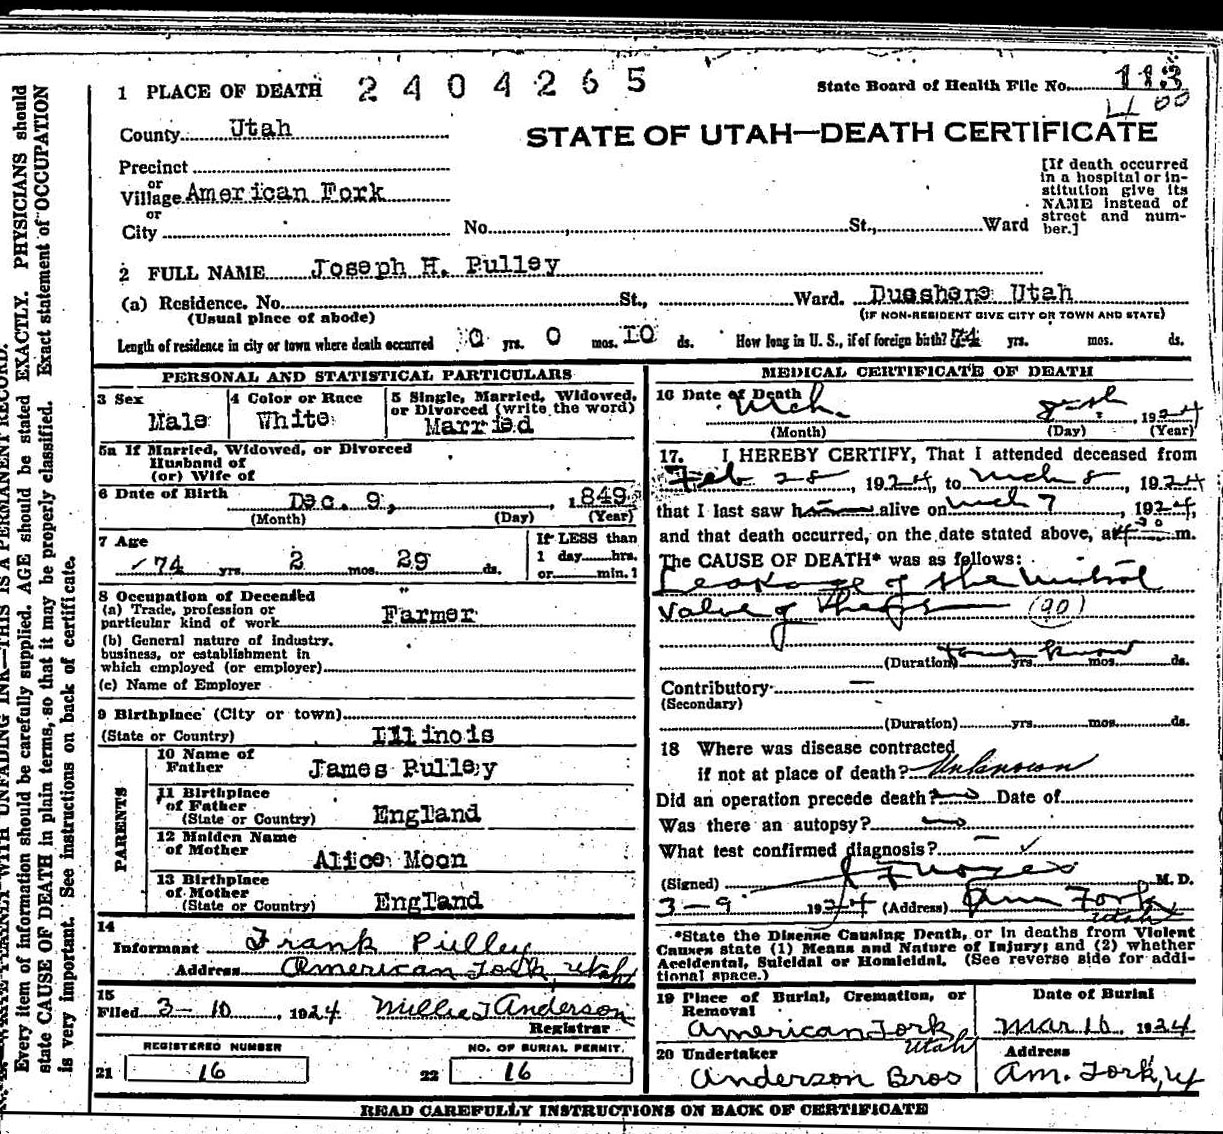 1 PLACE OF DEATH 2404265
State Board of Health File No. 113
County Utah
STATE OF UTAH—DEATH CERTIFICATE
Precinct
or
Village American Fork
or
City No. St., Ward
[If death occurred
in a hospital or in-
stitution give its
NAME instead of
street and num-
ber.]
2 FULL NAME Joseph H. Pulley
(a) Residence. No. St., Ward. Dueshere Utah
(Usual place of abode) (IF NON-RESIDENT GIVE CITY OR TOWN AND STATE)
Length of residence in city or town where death occurred 0 yrs. 0 mos. 10 ds. How long in U. S., if of foreign birth? 74 yrs. mos. ds.
PERSONAL AND STATISTICAL PARTICULARS
3 Sex 4 Color or Race 5 Single, Married, Widowed,
or Divorced (write the word)
Male White Married
5a If Married, Widowed, or Divorced
Husband of
(or) Wife of
6 Date of Birth Dec. 9, 1849
(Month) (Day) (Year)
7 Age If LESS than
74 yrs. 2 mos. 29 ds. 1 day hrs.
or min.?
8 Occupation of Deceased
(a) Trade, profession or
particular kind of work Farmer
(b) General nature of industry,
business, or establishment in
which employed (or employer)
(c) Name of Employer
9 Birthplace (City or town)
(State or Country) Illinois
PARENTS
10 Name of
Father James Pulley
11 Birthplace
of Father
(State or Country) England
12 Maiden Name
of Mother Alice Moon
13 Birthplace
of Mother
(State or Country) England
14
Informant Frank Pulley
Address American Fork, Utah
15
Filed 3-10, 1924 Millie J Anderson
Registrar
REGISTERED NUMBER NO. OF BURIAL PERMIT.
21 16 22 16
MEDICAL CERTIFICATE OF DEATH
16 Date of Death Mch. 8th, 1924
(Month) (Day) (Year)
17. I HEREBY CERTIFY, That I attended deceased from
Feb 28, 1924, to Mch 8, 1924
that I last saw h alive on Mch 7, 1924,
and that death occurred, on the date stated above, at m.
The CAUSE OF DEATH* was as follows:
Leakage of the Mitral
Valve of (90)
(Duration) yrs. know mos. ds.
Contributory —
(Secondary)
(Duration) yrs. mos. ds.
18 Where was disease contracted
if not at place of death? Unknown
Did an operation precede death? no Date of
Was there an autopsy? no
What test confirmed diagnosis? —
(Signed) M. D.
3-9 1924 (Address) Am Fork
Utah
*State the Disease Causing Death, or in deaths from Violent
Causes state (1) Means and Nature of Injury; and (2) whether
Accidental, Suicidal or Homicidal. (See reverse side for addi-
tional space.)
19 Place of Burial, Cremation, or Date of Burial
Removal
American Fork Mar 10, 1924
Utah
20 Undertaker Address
Anderson Bros Am. Fork, U
READ CAREFULLY INSTRUCTIONS ON BACK OF CERTIFICATE
UNFADING INK—THIS IS A PERMANENT RECORD.
Every item of information should be carefully supplied. AGE should be stated EXACTLY. PHYSICIANS should
state CAUSE OF DEATH in plain terms, so that it may be properly classified. Exact statement of OCCUPATION
is very important. See instructions on back of certificate.